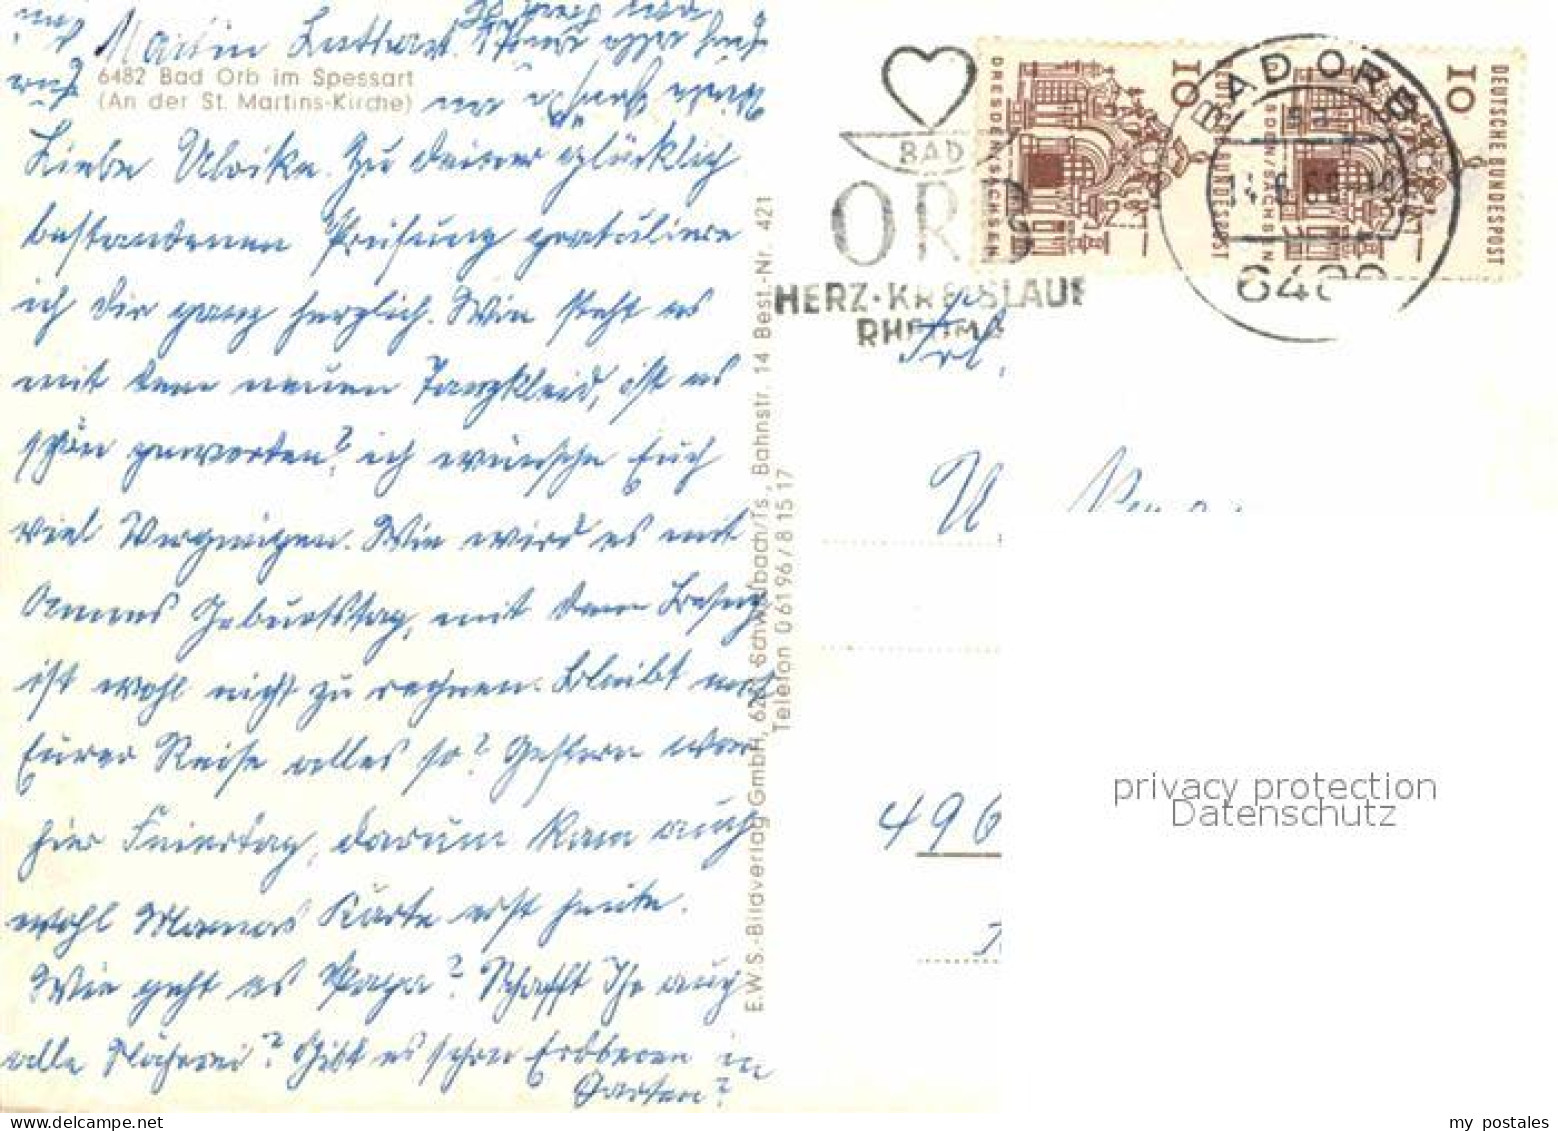 Martin Luther
6482 Bad Orb im Spessart
(An der St. Martins-Kirche)
Liebe Ulrike. Zu deiner glücklich
bestandenen Prüfung gratuliere
ich Dir ganz herzlich. Wie steht es
mit dem neuen Tanzkleid, ist es
schön geworden? ich wünsche Euch
viel Vergnügen. Wie wird es mit
Omas Geburtstag, mit dem Besuch
ist wohl nicht zu rechnen. Bleibt mit
Eurer Reise alles so? Gestern war
hier Feiertag, darum kam auch
wohl Mamas Karte erst heute.
Wie geht es Papa? Schafft Ihr auch
alle Näherei? Gibt es schon Erdbeeren in
Garten?
E.W.S.-Bildverlag GmbH, 623 Schwalbach/Ts., Bahnstr. 14 Best.-Nr. 421
Telefon 06196/81517
BAD
ORB
HERZ·KREISLAUF
RHEUMA
DRESDEN/SACHSEN
10
DEUTSCHE BUNDESPOST
DRESDEN/SACHSEN
10
DEUTSCHE BUNDESPOST
BAD ORB
Frl.
U.
496
privacy protection
Datenschutz
my postales